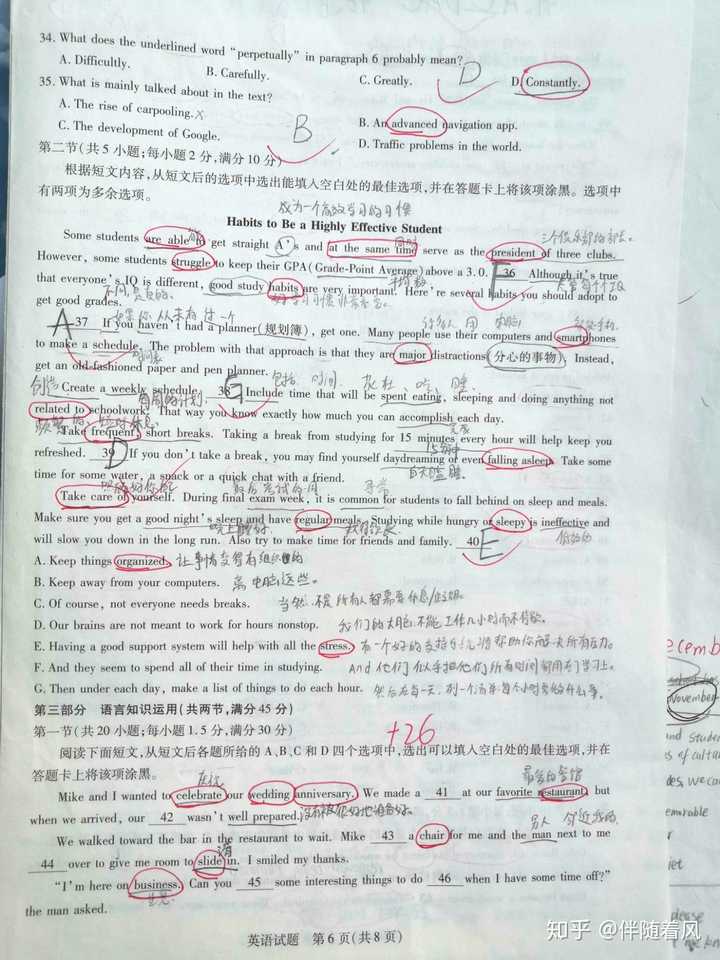 34. What does the underlined word "perpetually" in paragraph 6 probably mean?
A. Difficultly.
B. Carefully.
C. Greatly.
D
D. Constantly.
35. What is mainly talked about in the text?
A. The rise of carpooling. x
B. An advanced navigation app.
B
C. The development of Google.
D. Traffic problems in the world.
第二节(共5小题;每小题2分,满分10分)
根据短文内容,从短文后的选项中选出能填入空白处的最佳选项,并在答题卡上将该项涂黑。选项中
有两项为多余选项。
成为一个高效学习的习惯
Habits to Be a Highly Effective Student
Some students are able to get straight A's and at the same time serve as the president of three clubs.
However, some students struggle to keep their GPA(Grade-Point Average)above a 3.0. 36 F Although it's true
that everyone's IQ is different, good study habits are very important. Here're several habits you should adopt to
get good grades.
A 37 If you haven't had a planner(规划簿), get one. Many people use their computers and smartphones
to make a schedule. The problem with that approach is that they are major distractions(分心的事物). Instead,
get an old-fashioned paper and pen planner.
创造 Create a weekly schedule. 38 G Include time that will be spent eating, sleeping and doing anything not
related to schoolwork. That way you know exactly how much you can accomplish each day.
完成
Take frequent short breaks. Taking a break from studying for 15 minutes every hour will help keep you
15分钟
refreshed. 39 D If you don't take a break, you may find yourself daydreaming or even falling asleep. Take some
time for some water, a snack or a quick chat with a friend.
Take care of yourself. During final exam week, it is common for students to fall behind on sleep and meals.
Make sure you get a good night's sleep and have regular meals. Studying while hungry or sleepy is ineffective and
will slow you down in the long run. Also try to make time for friends and family. 40 E
A. Keep things organized. 让事情变得有组织的
B. Keep away from your computers. 离电脑远些。
C. Of course, not everyone needs breaks. 当然 不是所有人都需要休息
D. Our brains are not meant to work for hours nonstop. 我们的大脑不能工作几小时而不停歇。
E. Having a good support system will help with all the stress. 有一个好的支持系统将帮助你解决所有压力。
F. And they seem to spend all of their time in studying. And 他们似乎把他们所有时间都用于学习上。
G. Then under each day, make a list of things to do each hour. 然后在每一天,列一个清单每个小时要做什么事。
第三部分 语言知识运用(共两节,满分45分)
第一节(共20小题;每小题1.5分,满分30分)
+26
阅读下面短文,从短文后各题所给的A、B、C和D四个选项中,选出可以填入空白处的最佳选项,并在
答题卡上将该项涂黑。
庆祝
Mike and I wanted to celebrate our wedding anniversary. We made a 41 at our favorite restaurant, but
when we arrived, our 42 wasn't well prepared.
We walked toward the bar in the restaurant to wait. Mike 43 a chair for me and the man next to me
44 over to give me room to slide in. I smiled my thanks.
"I'm here on business. Can you 45 some interesting things to do 46 when I have some time off?"
the man asked.
英语试题 第6页(共8页)
November
知乎 @伴随着风